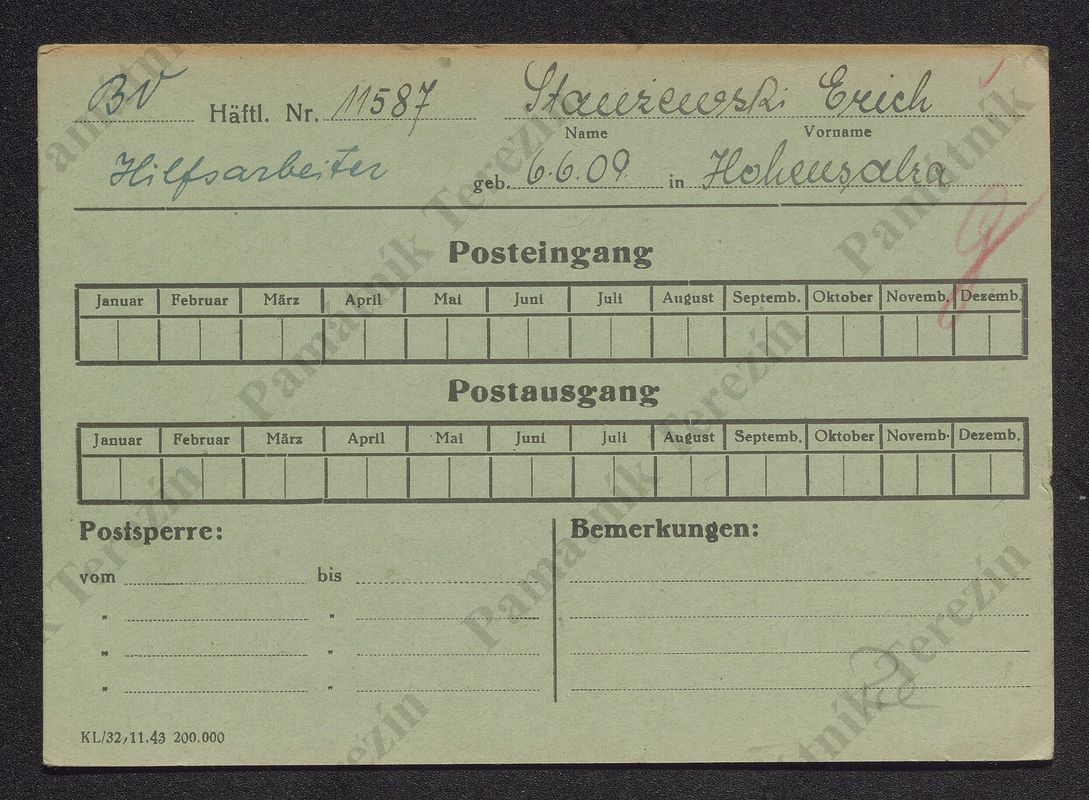 BV Häftl. Nr. 11587 Stanzewski Erich
Name Vorname
Hilfsarbeiter geb. 6.6.09 in Hohensalza
Posteingang
Januar Februar März April Mai Juni Juli August Septemb. Oktober Novemb. Dezemb.
Postausgang
Januar Februar März April Mai Juni Juli August Septemb. Oktober Novemb. Dezemb.
Postsperre: Bemerkungen:
vom bis
" "
" "
" "
KL/32, 11.43 200.000
Památník Terezín
Památník Terezín
Památník Terezín
Památník Terezín